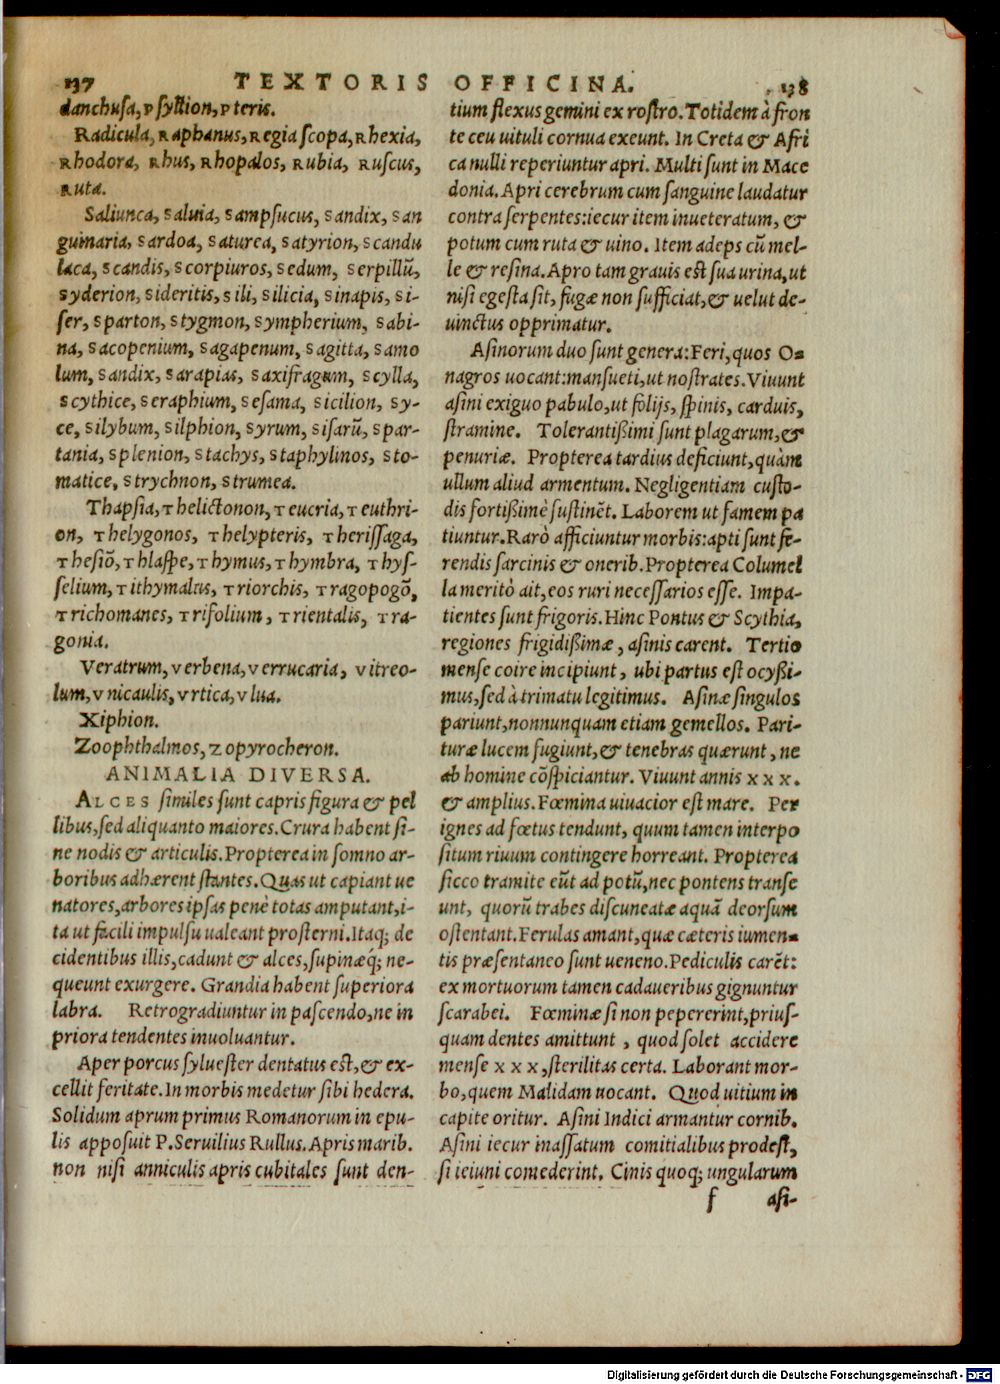 137 TEXTORIS OFFICINA. 138
danchusa, Psyllion, Pteris.
Radicula, Raphanus, Regia scopa, Rhexia,
Rhodora, Rhus, Rhopalos, Rubia, Ruscus,
Ruta.
Saliunca, Saluia, Sampsucus, Sandix, San
guinaria, Sardoa, Saturea, Satyrion, Scandu
laca, Scandis, Scorpiuros, Sedum, Serpillũ,
Syderion, Sideritis, Sili, Silicia, Sinapis, Si-
ser, Sparton, Stygmon, Sympherium, Sabi-
na, Sacopenium, Sagapenum, Sagitta, Samo
lum, Sandix, Sarapias, Saxifragum, Scylla,
Scythice, Seraphium, Sesama, Sicilion, Sy-
ce, Silybum, Silphion, Syrum, Sisarũ, Spar-
tania, Splenion, Stachys, Staphylinos, Sto-
matice, Strychnon, Strumea.
Thapsia, Thelictonon, Teucria, Teuthri-
on, Thelygonos, Thelypteris, Therissaga,
Thesiõ, Thlaspe, Thymus, Thymbra, Thys-
selium, Tithymalus, Triorchis, Tragopogõ,
Trichomanes, Trifolium, Trientalis, Tra-
gonia.
Veratrum, Verbena, Verrucaria, Vitreo-
lum, Vnicaulis, Vrtica, Vlua.
Xiphion.
Zoophthalmos, Zopyrocheron.
ANIMALIA DIVERSA.
ALCES similes sunt capris figura & pel
libus, sed aliquanto maiores. Crura habent si-
ne nodis & articulis. Propterea in somno ar-
boribus adhærent stantes. Quas ut capiant ue
natores, arbores ipsas penè totas amputant, i-
ta ut facili impulsu ualeant prosterni. Itaq; de
cidentibus illis, cadunt & alces, supinæq; ne-
queunt exurgere. Grandia habent superiora
labra. Retrogradiuntur in pascendo, ne in
priora tendentes inuoluantur.
Aper porcus syluester dentatus est, & ex-
cellit feritate. In morbis medetur sibi hedera.
Solidum aprum primus Romanorum in epu-
lis apposuit P. Seruilius Rullus. Apris marib.
non nisi anniculis apris cubitales sunt den-
tium flexus gemini ex rostro. Totidem à fron
te ceu uituli cornua exeunt. In Creta & Afri
ca nulli reperiuntur apri. Multi sunt in Mace
donia. Apri cerebrum cum sanguine laudatur
contra serpentes: iecur item inueteratum, &
potum cum ruta & uino. Item adeps cũ mel-
le & resina. Apro tam grauis est sua urina, ut
nisi egesta sit, fugæ non sufficiat, & uelut de-
uinctus opprimatur.
Asinorum duo sunt genera: Feri, quos O-
nagros uocant: mansueti, ut nostrates. Viuunt
asini exiguo pabulo, ut folijs, spinis, carduis,
stramine. Tolerantißimi sunt plagarum, &
penuriæ. Propterea tardius deficiunt, quàm
ullum aliud armentum. Negligentiam custo-
dis fortißimè sustinẽt. Laborem ut famem pa
tiuntur. Rarò afficiuntur morbis: apti sunt fe-
rendis sarcinis & onerib. Propterea Columel
la meritò ait, eos ruri necessarios esse. Impa-
tientes sunt frigoris. Hinc Pontus & Scythia,
regiones frigidißimæ, asinis carent. Tertio
mense coire incipiunt, ubi partus est ocyßi-
mus, sed à trimatu legitimus. Asinæ singulos
pariunt, nonnunquam etiam gemellos. Pari-
turæ lucem fugiunt, & tenebras quærunt, ne
ab homine cõspiciantur. Viuunt annis XXX.
& amplius. Fœmina uiuacior est mare. Per
ignes ad fœtus tendunt, quum tamen interpo
situm riuum contingere horreant. Propterea
sicco tramite eũt ad potũ, nec pontens transe
unt, quorũ trabes discuneatæ aquã deorsum
ostentant. Ferulas amant, quæ cæteris iumen-
tis præsentaneo sunt ueneno. Pediculis carẽt:
ex mortuorum tamen cadaueribus gignuntur
scarabei. Fœminæ si non pepererint, prius-
quam dentes amittunt, quod solet accidere
mense XXX, sterilitas certa. Laborant mor-
bo, quem Malidam uocant. Quod uitium in
capite oritur. Asini Indici armantur cornib.
Asini iecur inassatum comitialibus prodest,
si ieiuni comederint. Cinis quoq; ungularum
f asi-
Digitalisierung gefördert durch die Deutsche Forschungsgemeinschaft - DFG